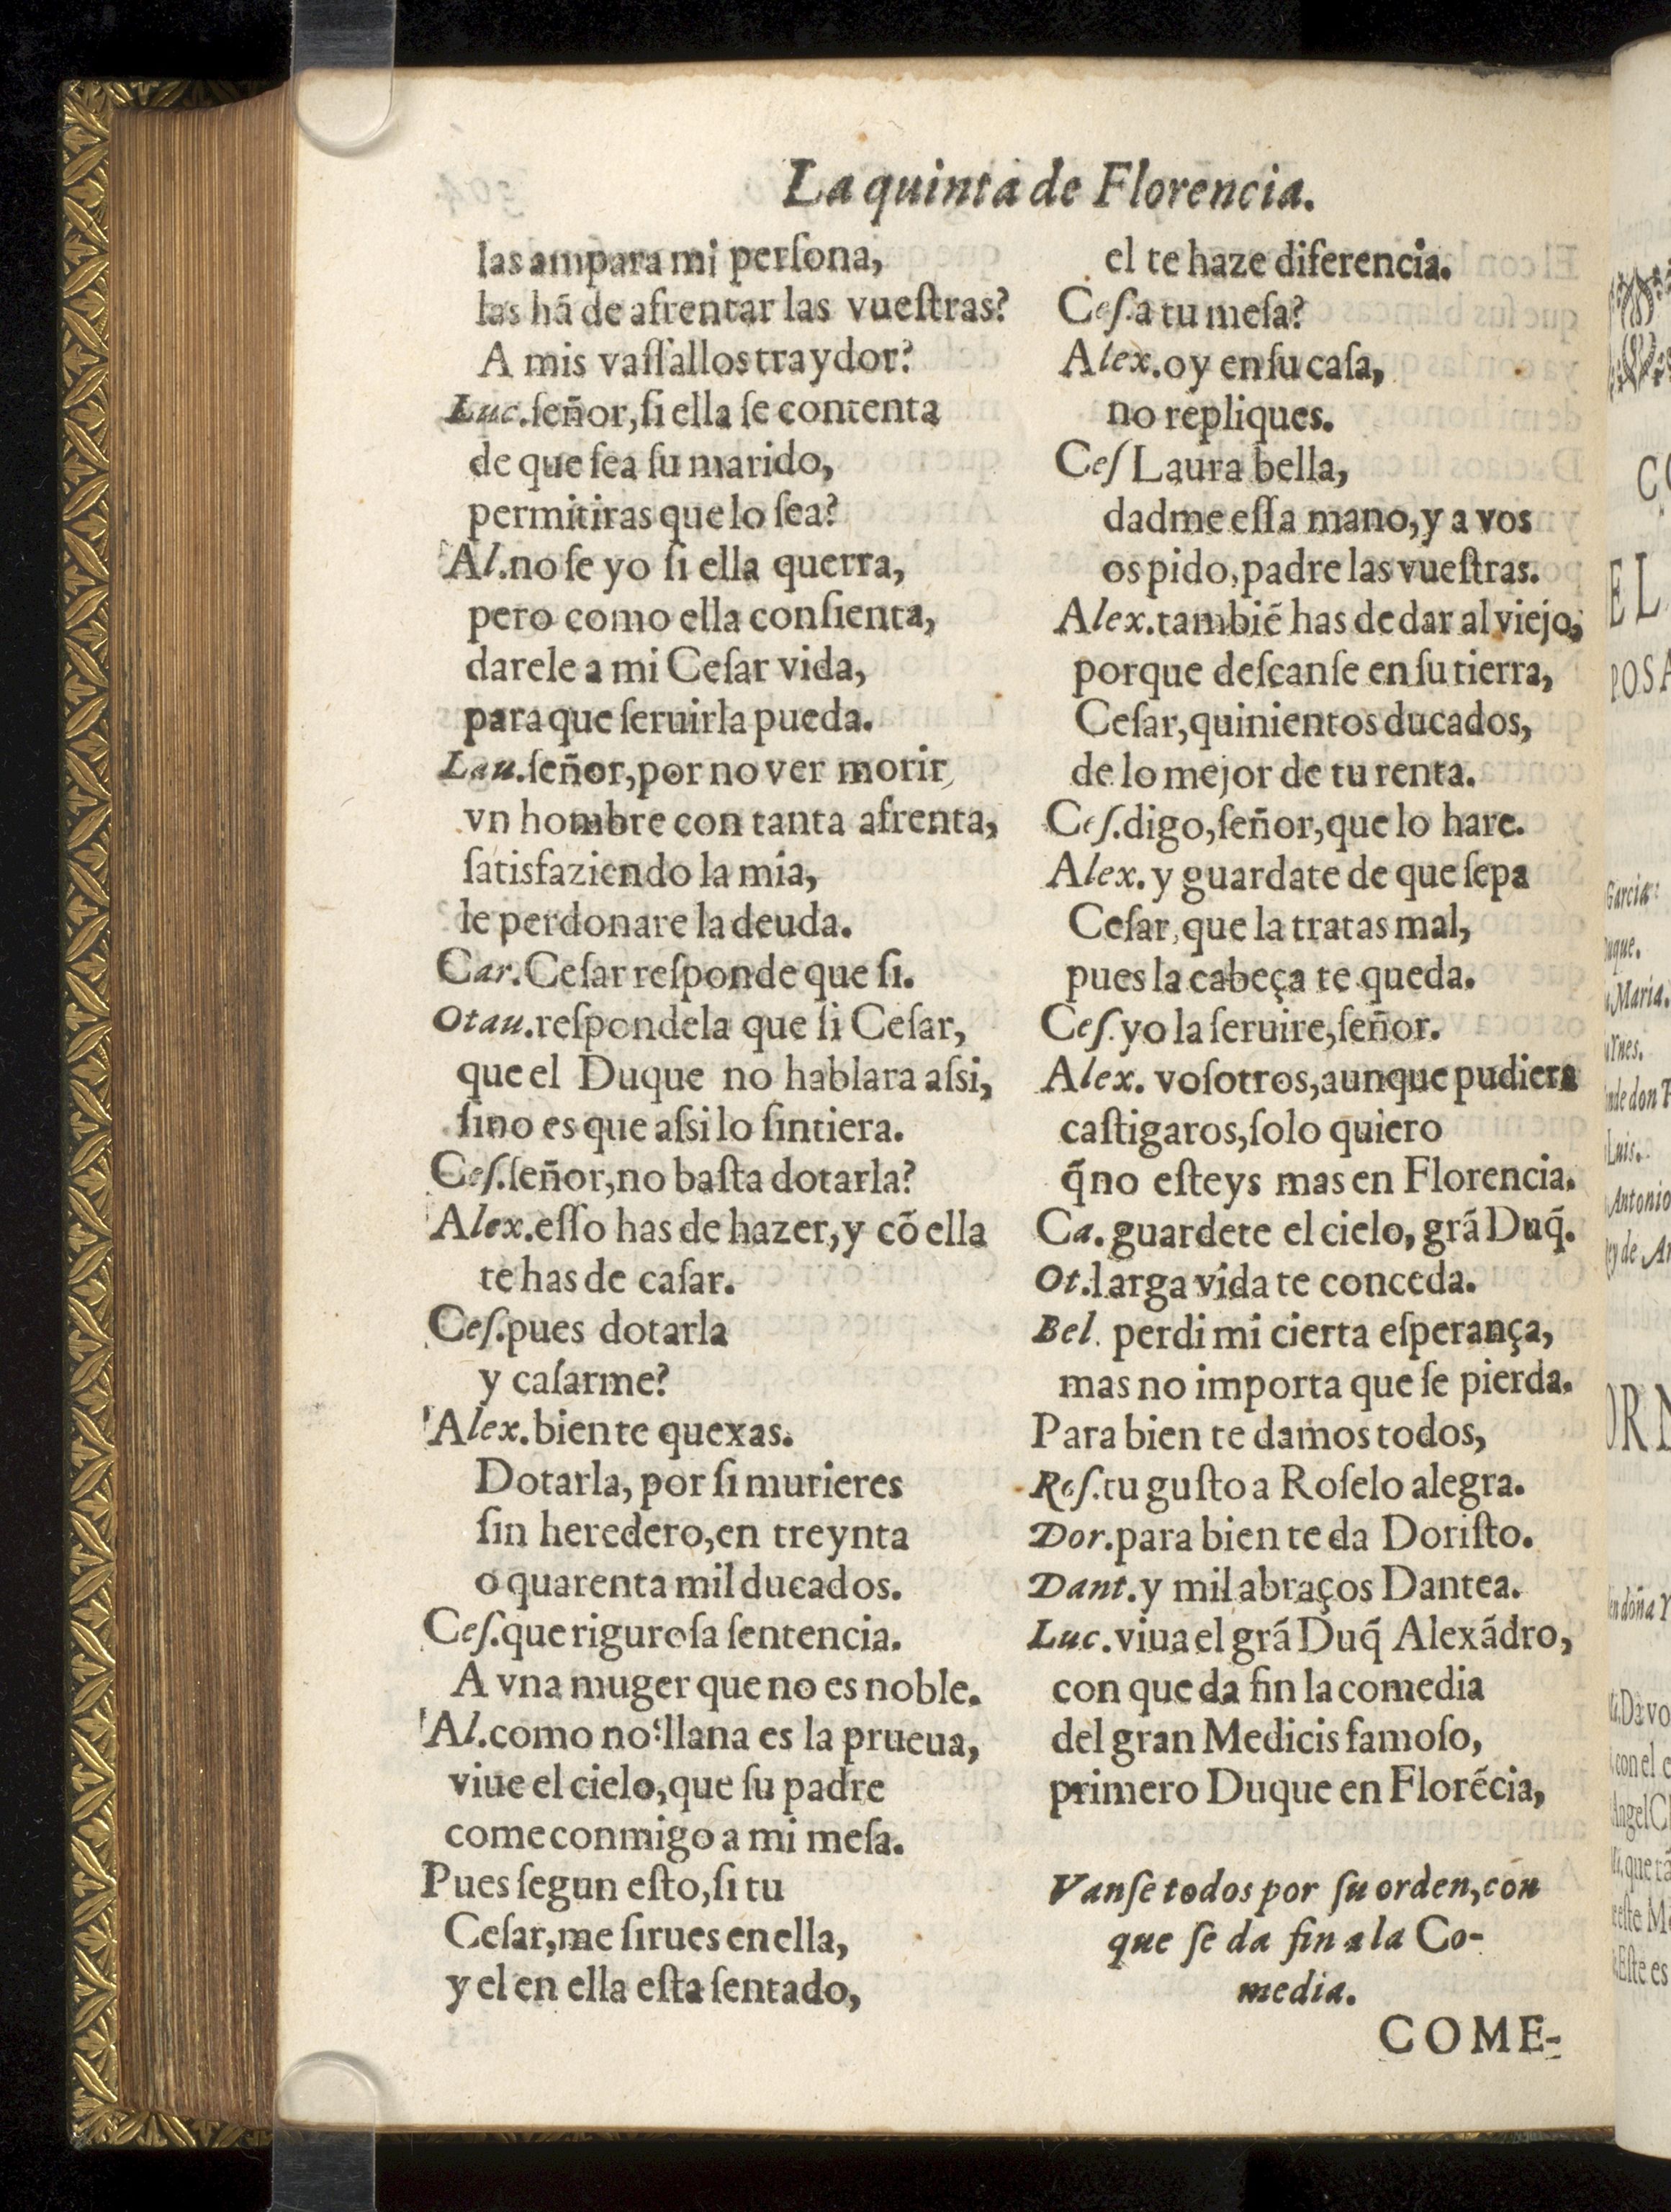 La quinta de Florencia.
las ampara mi perſona,
las hã de afrentar las vueſtras?
A mis vaſſallos traydor?
Luc. ſeñor, ſi ella ſe contenta
de que ſea ſu marido,
permitiras que lo ſea?
Al. no ſe yo ſi ella querra,
pero como ella conſienta,
darele a mi Ceſar vida,
para que ſeruirla pueda.
Lau. ſeñor, por no ver morir,
vn hombre con tanta afrenta,
ſatisfaziendo la mia,
le perdonare la deuda.
Car. Ceſar reſponde que ſi.
Otau. reſpondela que ſi Ceſar,
que el Duque no hablara aſsi,
ſino es que aſsi lo ſintiera.
Ceſ. ſeñor, no baſta dotarla?
Alex. eſſo has de hazer, y cõ ella
te has de caſar.
Ceſ. pues dotarla
y caſarme?
Alex. bien te quexas.
Dotarla, por ſi murieres
ſin heredero, en treynta
o quarenta mil ducados.
Ceſ. que riguroſa ſentencia.
A vna muger que no es noble.
Al. como no? llana es la prueua,
viue el cielo, que ſu padre
come conmigo a mi meſa.
Pues ſegun eſto, ſi tu
Ceſar, me ſirues en ella,
y el en ella eſta ſentado,
el te haze diferencia.
Ceſ. a tu meſa?
Alex. oy en ſu caſa,
no repliques.
Ceſ Laura bella,
dadme eſſa mano, y a vos
os pido, padre las vueſtras.
Alex. tambiẽ has de dar al viejo,
porque deſcanſe en ſu tierra,
Ceſar, quinientos ducados,
de lo mejor de tu renta.
Ceſ. digo, ſeñor, que lo hare.
Alex. y guardate de que ſepa
Ceſar, que la tratas mal,
pues la cabeça te queda.
Ceſ. yo la ſeruire, ſeñor.
Alex. voſotros, aunque pudiera
caſtigaros, ſolo quiero
q̃ no eſteys mas en Florencia.
Ca. guardete el cielo, grã Duq̃.
Ot. larga vida te conceda.
Bel. perdi mi cierta eſperança,
mas no importa que ſe pierda.
Para bien te damos todos,
Roſ. tu guſto a Roſelo alegra.
Dor. para bien te da Doriſto.
Dant. y mil abraços Dantea.
Luc. viua el grã Duq̃ Alexãdro,
con que da fin la comedia
del gran Medicis famoſo,
primero Duque en Florẽcia,
Vanſe todos por ſu orden, con
que ſe da fin a la Co-
media.
COME-